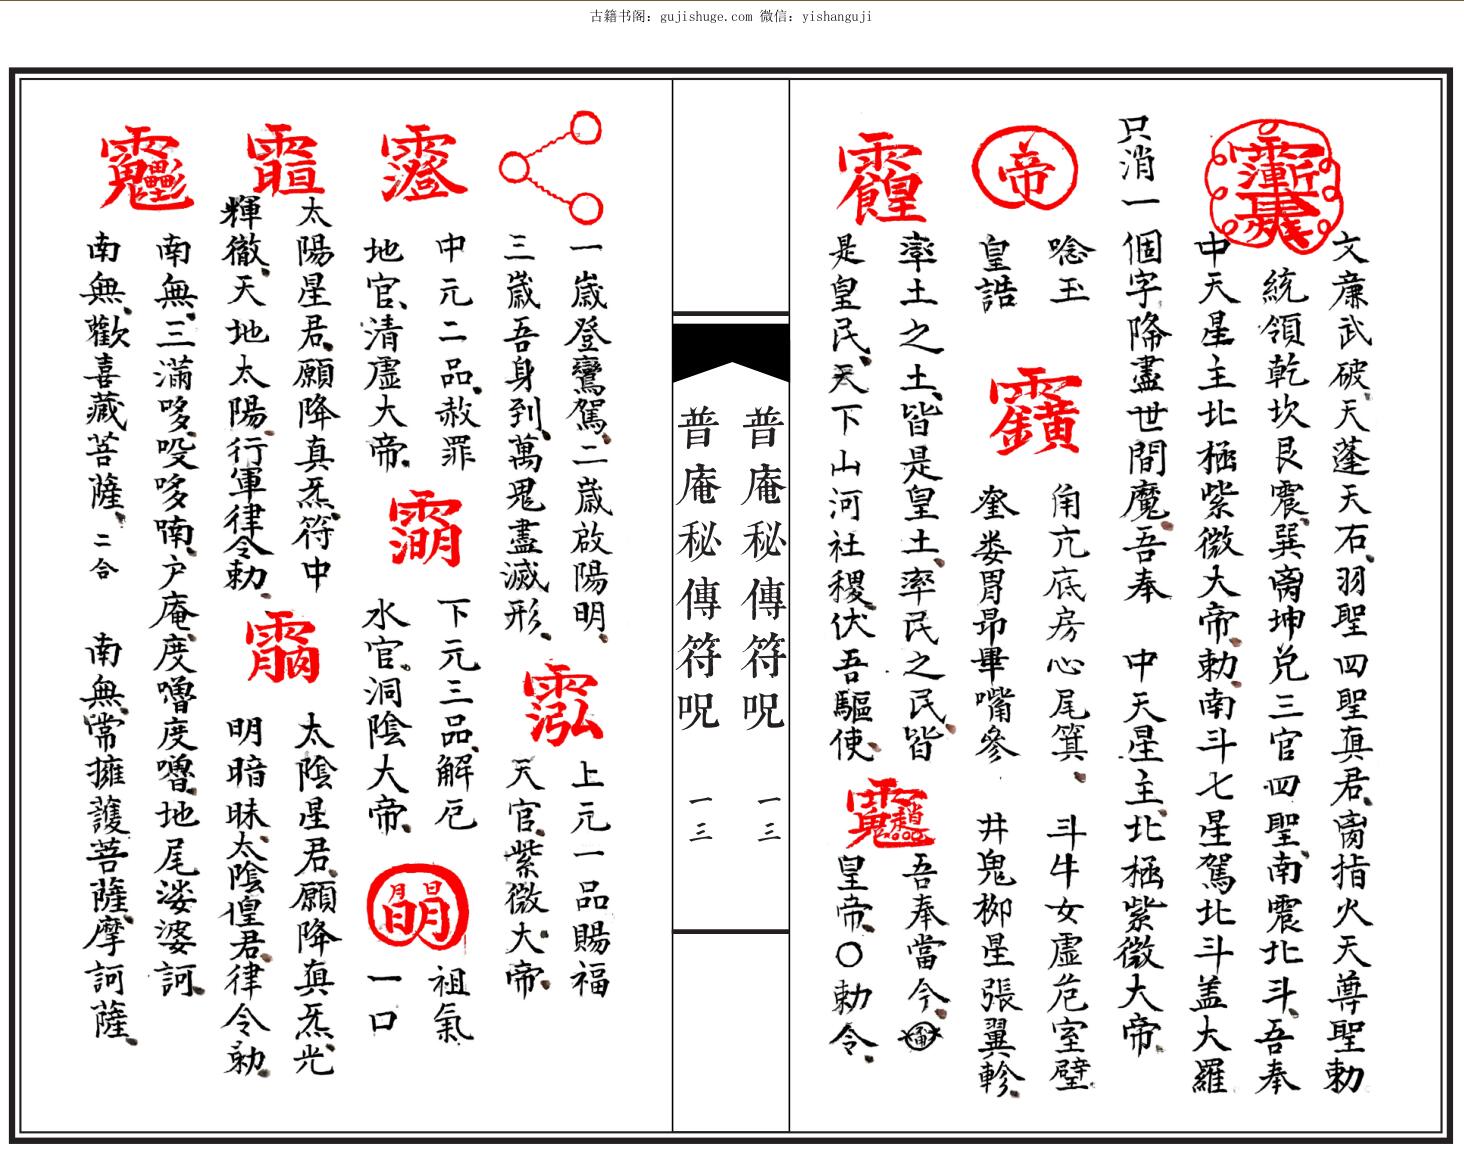 古籍书阁：gujishuge.com 微信：yishanguji
文廉武破天蓬天石羽聖四聖真君离指火天尊聖勅
統領乾坎艮震巽离坤兑三官四聖南震北斗吾奉
中天星主北極紫微大帝勅南斗七星駕北斗盖大羅
只消一個字降盡世間魔吾奉 中天星主北極紫微大帝
帝
唸玉
皇誥
角亢底房心尾箕 斗牛女虛危室壁
奎娄胃昴畢嘴參 井鬼柳星張翼軫
率土之土皆是皇土率民之民皆
是皇民天下山河社稷伏吾驅使
吾奉當今
皇帝〇勅令
普庵秘傳符呪 一三
普庵秘傳符呪 一三
一歲登鸞駕二歲啟陽明
三歲吾身到萬鬼盡滅形
上元一品賜福
天官紫微大帝
中元二品赦罪
地官清虛大帝
下元三品解厄
水官洞陰大帝
祖氣
一口
太陽星君願降真炁符中
輝徹天地太陽行軍律令勅
太陰星君願降真炁光
明暗昧太陰惶君律令勅
南無三滿哆哎哆喃户庵度嚕度嚕地尾溇婆訶
南無歡喜藏菩薩二合 南無常擁護菩薩摩訶薩